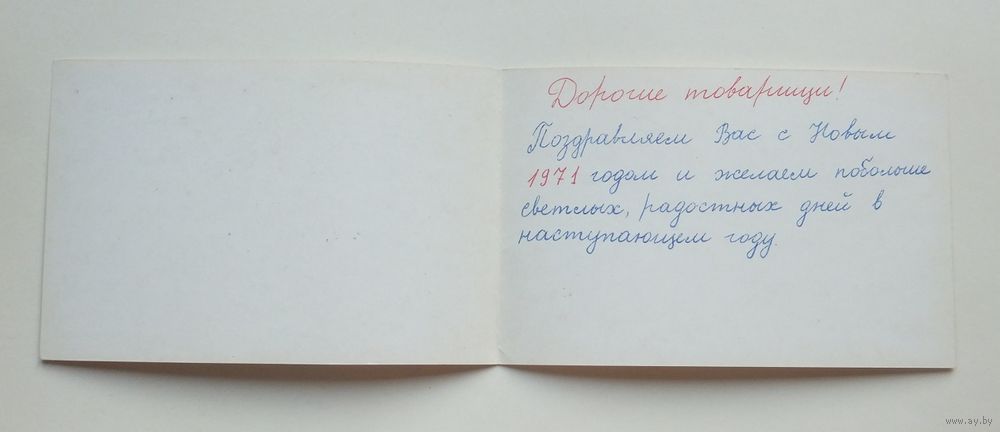 Дорогие товарищи!
Поздравляем Вас с Новым
1971 годом и желаем побольше
светлых, радостных дней в
наступающем году.
www.ay.by